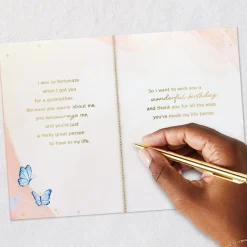 I was so fortunate
when I got you
for a godmother.
Because you care about me,
you encourage me,
and you're just
a really great person
to have in my life.
So I want to wish you a
wonderful birthday
and thank you for all the ways
you've made my life better.